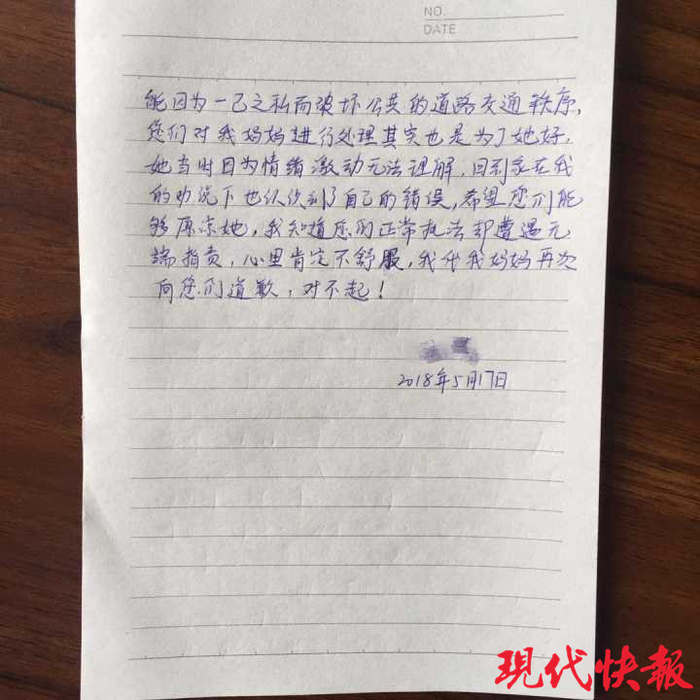 NO.
DATE
能因为一己之私而破坏公共的道路交通秩序,
您们对我妈妈进行处理其实也是为了她好,
她当时因为情绪激动无法理解,回到家在我
的劝说下也认识到了自己的错误,希望您们能
够原谅她,我知道您们正常执法却遭遇无
端指责,心里肯定不舒服,我代我妈妈再次
向您们道歉,对不起!
2018年5月17日
现代快報